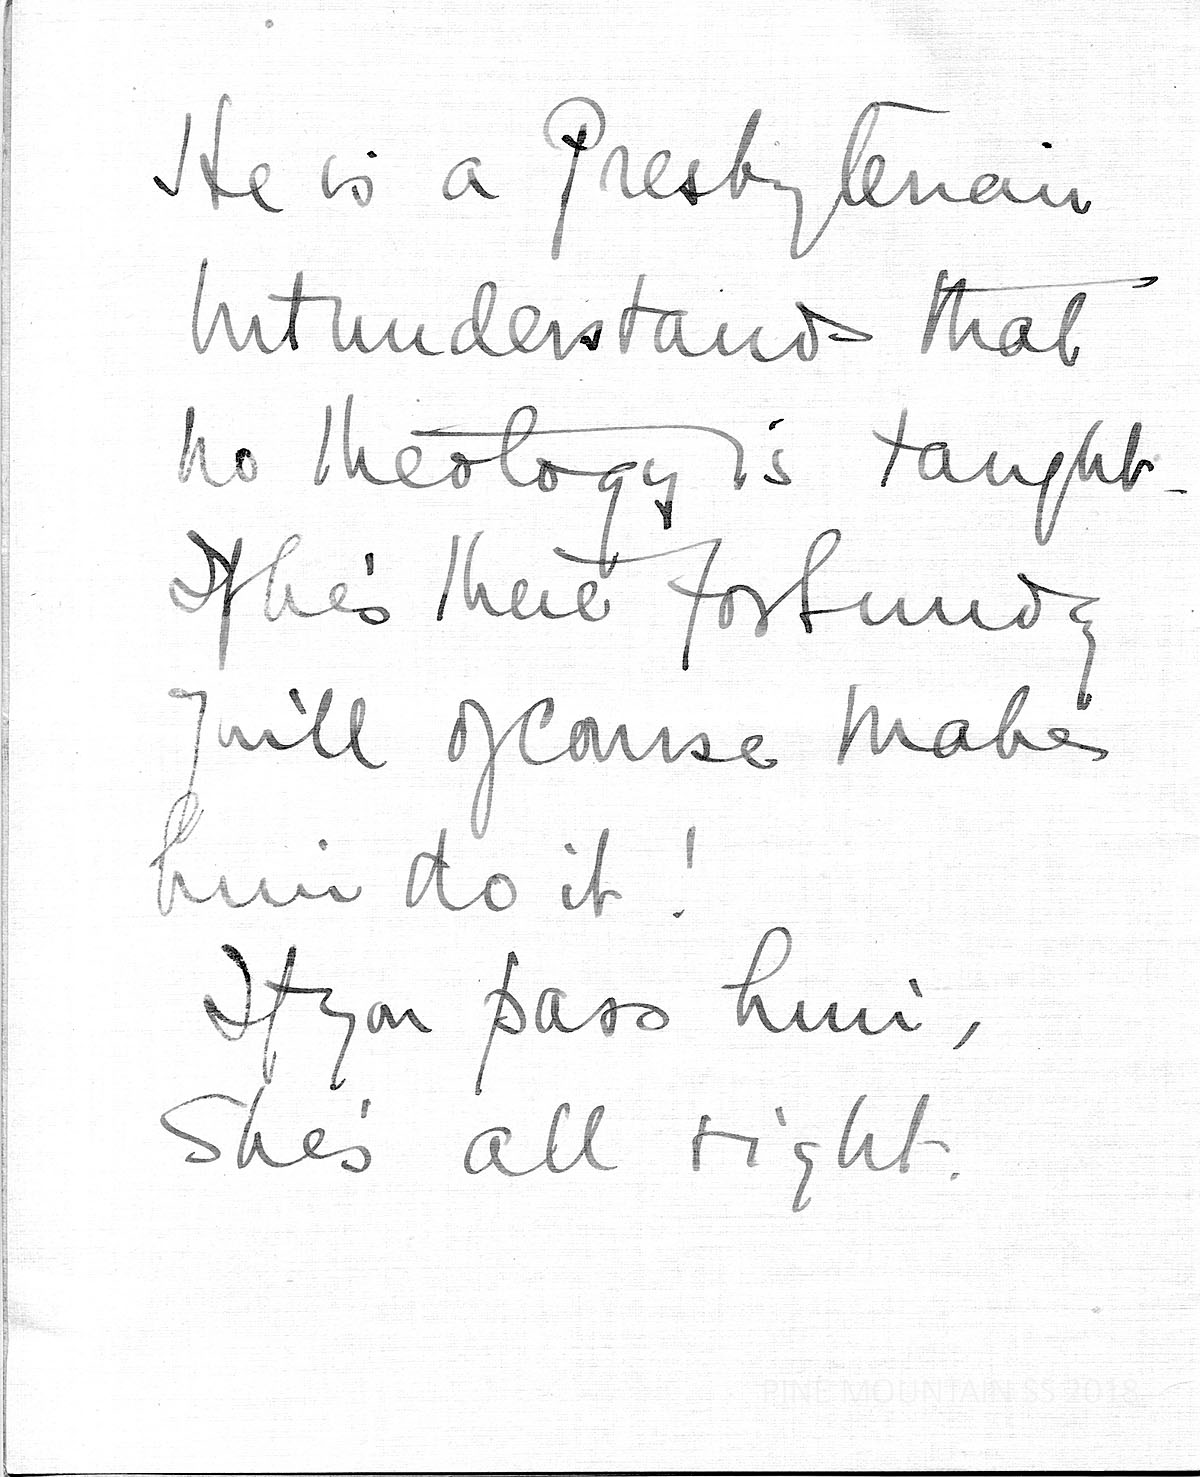 He is a Presbyterian
but understands that
no theology is taught.
If he's there for Sunday
I will of course make
him do it!
If you pass him,
She's all right.
PINE MOUNTAIN SS 2018